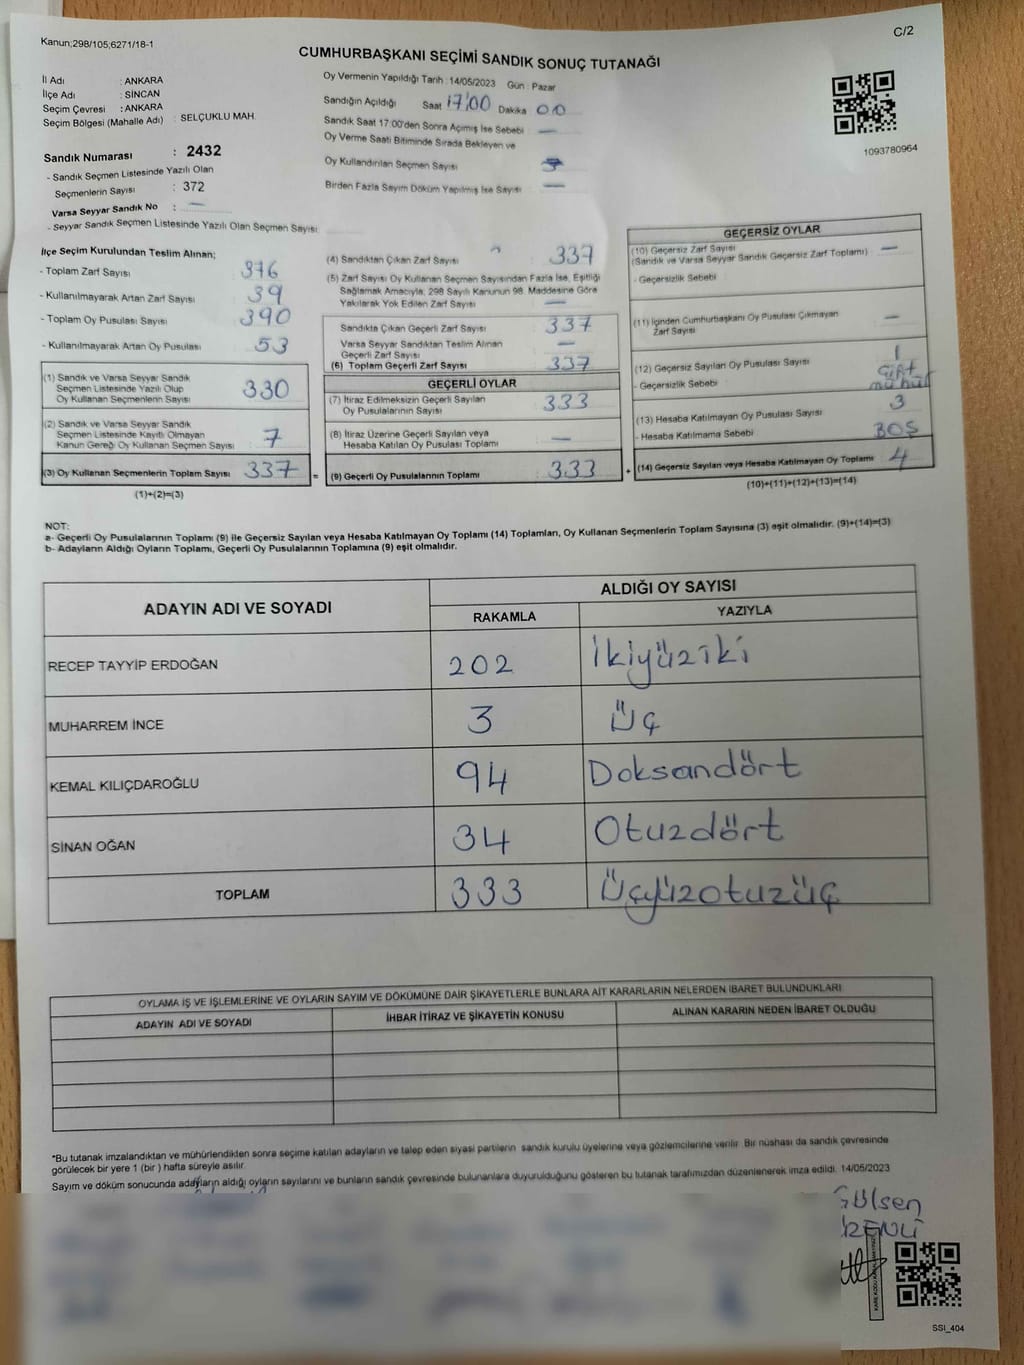 Kanun;298/105;6271/18-1
C/2
CUMHURBAŞKANI SEÇİMİ SANDIK SONUÇ TUTANAĞI
İl Adı : ANKARA
İlçe Adı : SİNCAN
Seçim Çevresi : ANKARA
Seçim Bölgesi (Mahalle Adı) : SELÇUKLU MAH.
Sandık Numarası : 2432
- Sandık Seçmen Listesinde Yazılı Olan
Seçmenlerin Sayısı : 372
Varsa Seyyar Sandık No : —
- Seyyar Sandık Seçmen Listesinde Yazılı Olan Seçmen Sayısı:
Oy Vermenin Yapıldığı Tarih : 14/05/2023 Gün : Pazar
Sandığın Açıldığı Saat 17:00 Dakika 00
Sandık Saat 17:00'den Sonra Açımış İse Sebebi —
Oy Verme Saati Bitiminde Sırada Bekleyen ve
Oy Kullandırılan Seçmen Sayısı
Birden Fazla Sayım Döküm Yapılmış İse Sayısı —
1093780964
İlçe Seçim Kurulundan Teslim Alınan;
- Toplam Zarf Sayısı 376
- Kullanılmayarak Artan Zarf Sayısı 39
- Toplam Oy Pusulası Sayısı 390
- Kullanılmayarak Artan Oy Pusulası 53
(1) Sandık ve Varsa Seyyar Sandık
Seçmen Listesinde Yazılı Olup
Oy Kullanan Seçmenlerin Sayısı 330
(2) Sandık ve Varsa Seyyar Sandık
Seçmen Listesinde Kayıtlı Olmayan
Kanun Gereği Oy Kullanan Seçmen Sayısı 7
(3) Oy Kullanan Seçmenlerin Toplam Sayısı 337 =
(1)+(2)=(3)
(4) Sandıktan Çıkan Zarf Sayısı : 337
(5) Zarf Sayısı Oy Kullanan Seçmen Sayısından Fazla İse, Eşitliği
Sağlamak Amacıyla, 298 Sayılı Kanunun 98. Maddesine Göre
Yakılarak Yok Edilen Zarf Sayısı —
Sandıkta Çıkan Geçerli Zarf Sayısı 337
Varsa Seyyar Sandıktan Teslim Alınan
Geçerli Zarf Sayısı —
(6) Toplam Geçerli Zarf Sayısı 337
GEÇERLİ OYLAR
(7) İtiraz Edilmeksizin Geçerli Sayılan
Oy Pusulalarının Sayısı 333
(8) İtiraz Üzerine Geçerli Sayılan veya
Hesaba Katılan Oy Pusulası Toplamı —
(9) Geçerli Oy Pusulalarının Toplamı 333 +
GEÇERSİZ OYLAR
(10) Geçersiz Zarf Sayısı
(Sandık ve Varsa Seyyar Sandık Geçersiz Zarf Toplamı) —
- Geçersizlik Sebebi
(11) İçinden Cumhurbaşkanı Oy Pusulası Çıkmayan
Zarf Sayısı —
(12) Geçersiz Sayılan Oy Pusulası Sayısı 1
- Geçersizlik Sebebi Çift mühür
(13) Hesaba Katılmayan Oy Pusulası Sayısı 3
- Hesaba Katılmama Sebebi BOŞ
(14) Geçersiz Sayılan veya Hesaba Katılmayan Oy Toplamı 4
(10)+(11)+(12)+(13)=(14)
NOT:
a- Geçerli Oy Pusulalarının Toplamı (9) ile Geçersiz Sayılan veya Hesaba Katılmayan Oy Toplamı (14) Toplamları, Oy Kullanan Seçmenlerin Toplam Sayısına (3) eşit olmalıdır. (9)+(14)=(3)
b- Adayların Aldığı Oyların Toplamı, Geçerli Oy Pusulalarının Toplamına (9) eşit olmalıdır.
ADAYIN ADI VE SOYADI ALDIĞI OY SAYISI
RAKAMLA YAZIYLA
RECEP TAYYİP ERDOĞAN 202 İkiyüziki
MUHARREM İNCE 3 Üç
KEMAL KILIÇDAROĞLU 94 Doksandört
SİNAN OĞAN 34 Otuzdört
TOPLAM 333 Üçyüzotuzüç
OYLAMA İŞ VE İŞLEMLERİNE VE OYLARIN SAYIM VE DÖKÜMÜNE DAİR ŞİKAYETLERLE BUNLARA AİT KARARLARIN NELERDEN İBARET BULUNDUKLARI
ADAYIN ADI VE SOYADI İHBAR İTİRAZ VE ŞİKAYETİN KONUSU ALINAN KARARIN NEDEN İBARET OLDUĞU
*Bu tutanak imzalandıktan ve mühürlendikten sonra seçime katılan adayların ve talep eden siyasi partilerin sandık kurulu üyelerine veya gözlemcilerine verilir. Bir nüshası da sandık çevresinde
görülecek bir yere 1 (bir) hafta süreyle asılır.
Sayım ve döküm sonucunda adayların aldığı oyların sayılarını ve bunların sandık çevresinde bulunanlara duyurulduğunu gösteren bu tutanak tarafımızdan düzenlenerek imza edildi. 14/05/2023
Gülsen
SSI_404